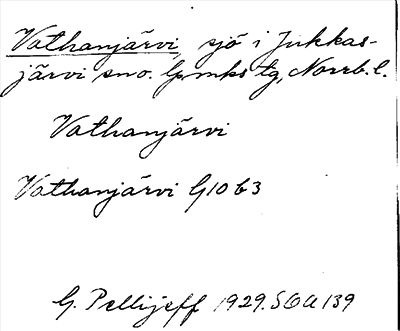 Vathanjärvi, sjö i Jukkas-
järvi sno. Lpmks tg, Norrb. l.
Vathanjärvi
Vathanjärvi G10 b3
G. Pellijeff 1929. SOA 139